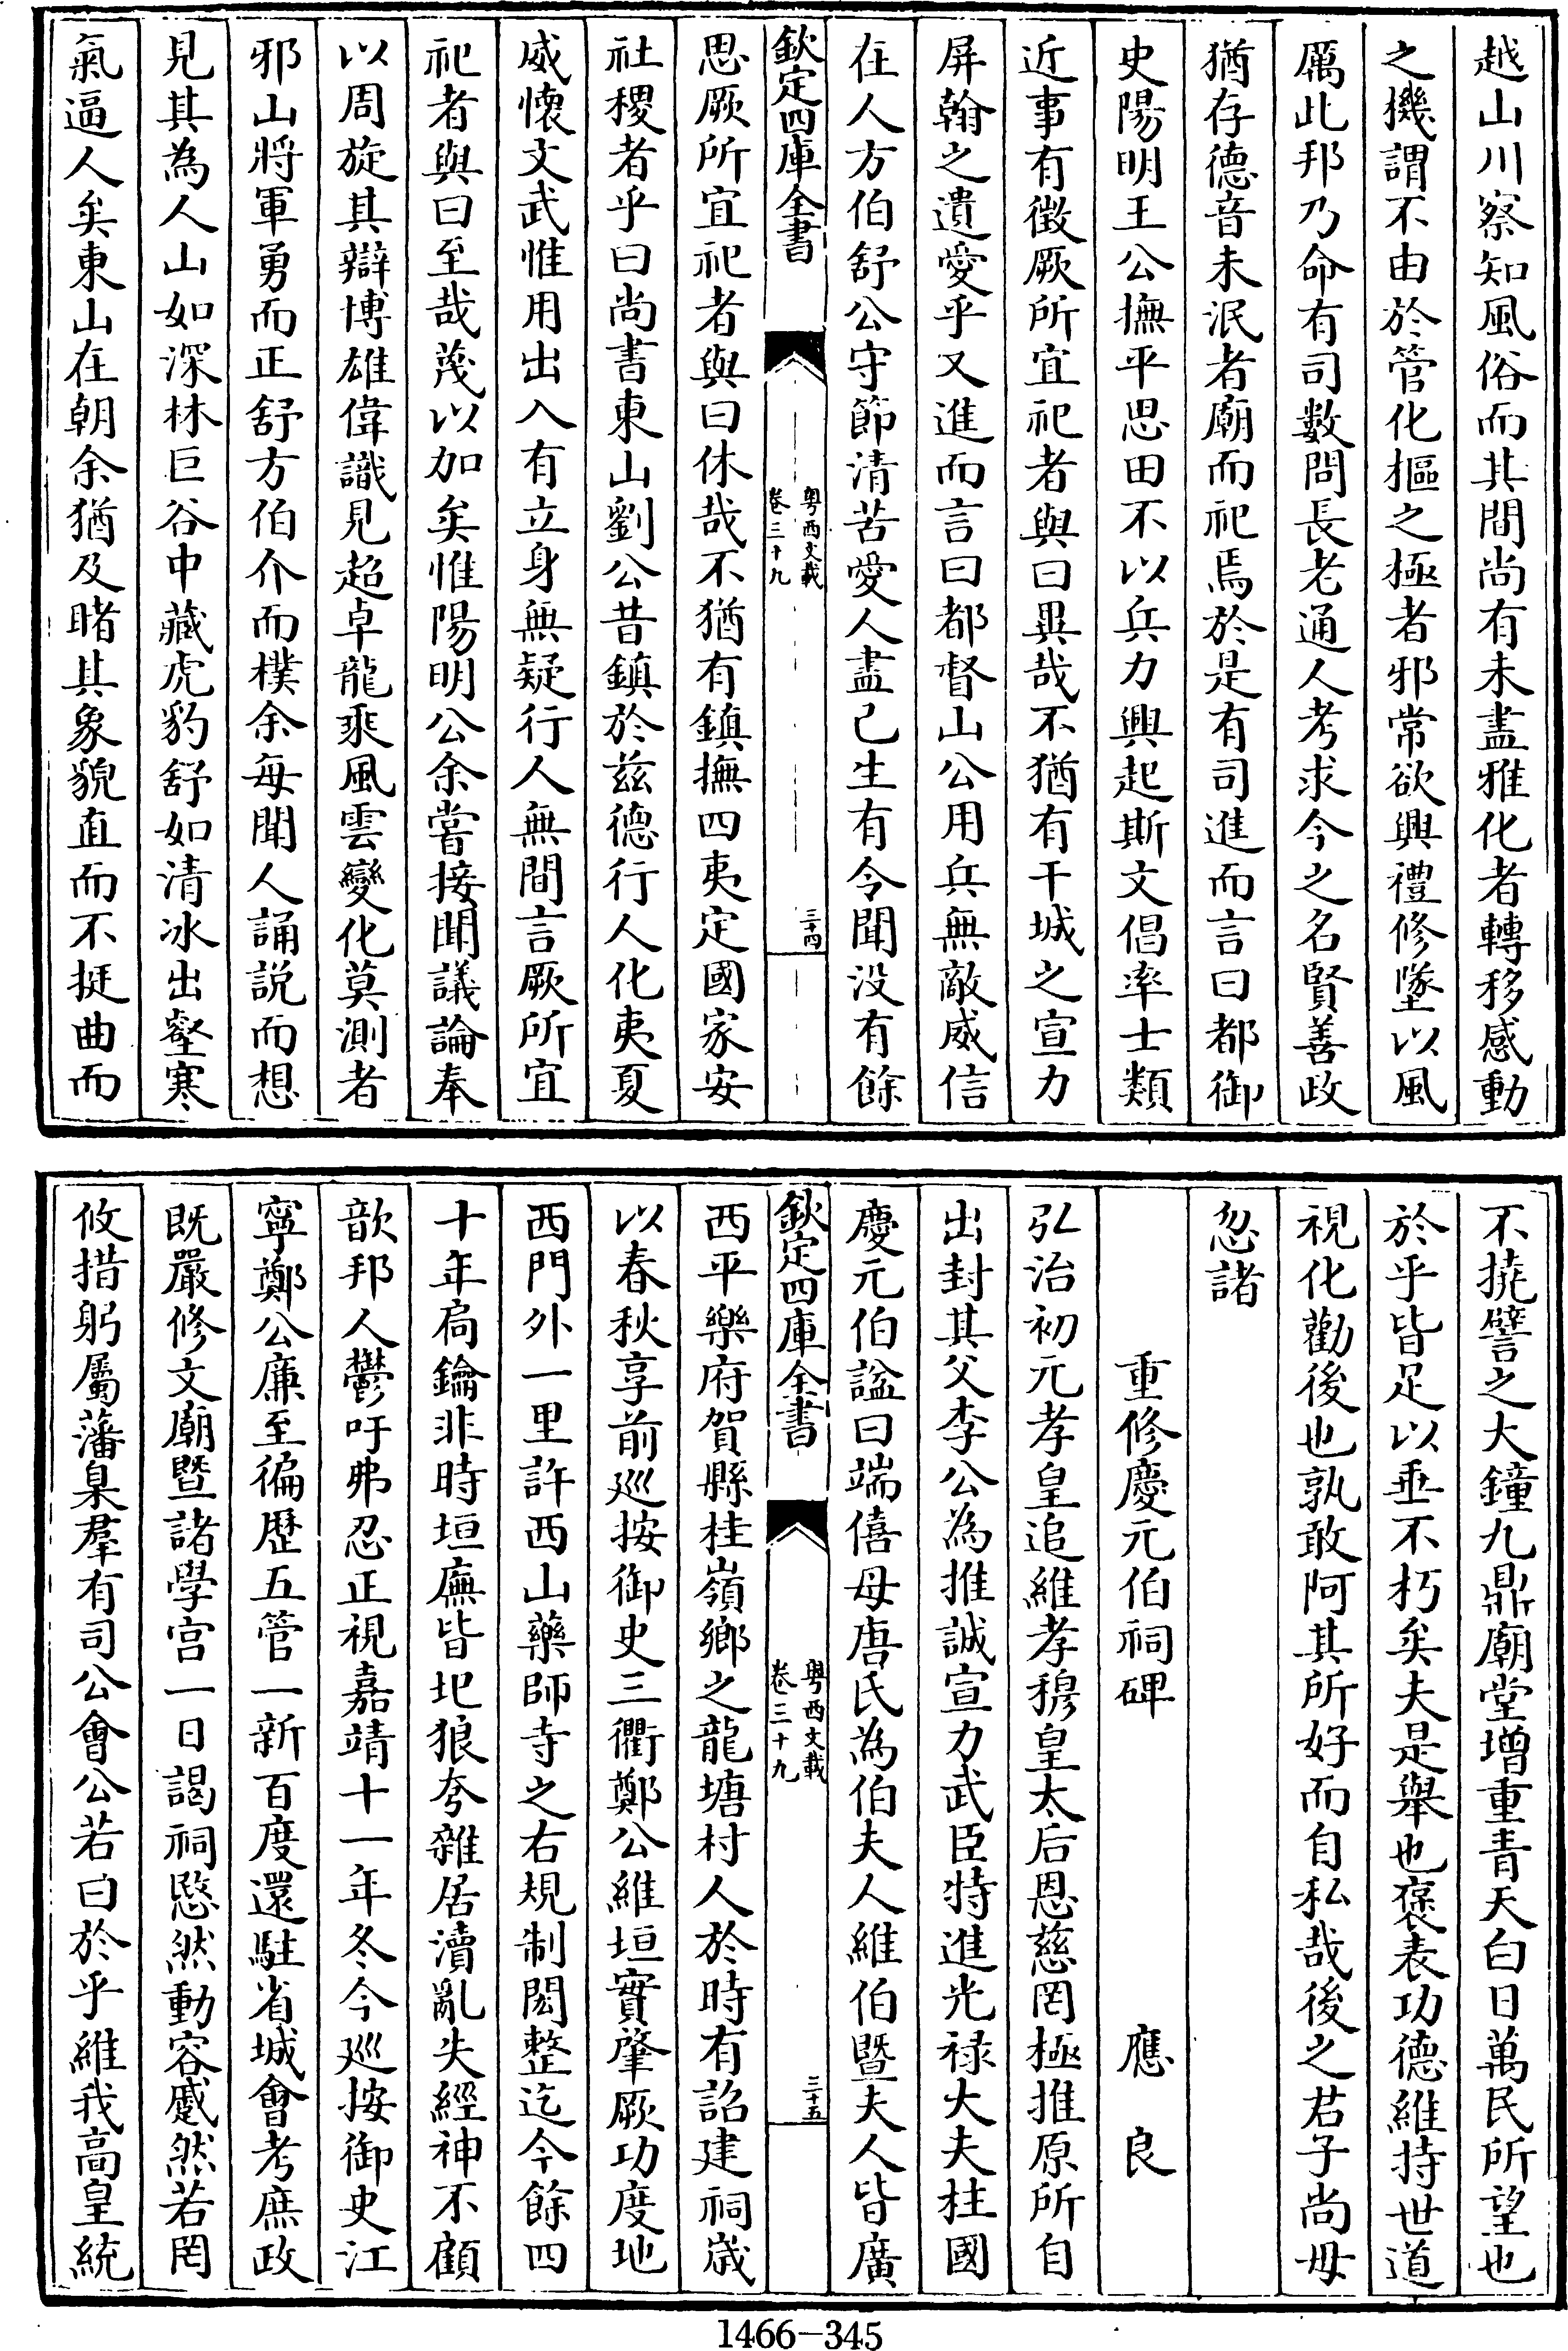 越山川察知風俗而其間尚有未盡雅化者轉移感動
之機謂不由於管化摳之極者邪常欲興禮修墜以風
厲此邦乃命有司數問長老通人考求今之名賢善政
猶存德音未泯者廟而祀焉於是有司進而言曰都御
史陽明王公撫平思田不以兵力興起斯文倡率士類
近事有徵厥所宜祀者與曰異哉不猶有干城之宣力
屏翰之遺愛乎又進而言曰都督山公用兵無敵威信
在人方伯舒公守節清苦愛人盡己生有令聞没有餘
欽定四庫全書
粤西文載
卷三十九
三十四
思厥所宜祀者與曰休哉不猶有鎮撫四夷定國家安
社稷者乎曰尚書東山劉公昔鎮於兹德行人化夷夏
威懷文武惟用出入有立身無疑行人無間言厥所宜
祀者與曰至哉蔑以加矣惟陽明公余嘗接聞議論奉
以周旋其辯博雄偉識見超卓龍乘風雲變化莫測者
邪山將軍勇而正舒方伯介而樸余每聞人誦説而想
見其為人山如深林巨谷中藏虎豹舒如清冰出壑寒
氣逼人矣東山在朝余猶及睹其象貌直而不挺曲而
不撓譬之大鐘九鼎廟堂增重青天白日萬民所望也
於乎皆足以垂不朽矣夫是舉也褒表功德維持世道
視化勸後也孰敢阿其所好而自私哉後之君子尚毋
忽諸
重修慶元伯祠碑　應良
弘治初元孝皇追維孝穆皇太后恩慈罔極推原所自
出封其父李公為推誠宣力武臣特進光禄大夫柱國
慶元伯諡曰端僖母唐氏為伯夫人維伯暨夫人皆廣
欽定四庫全書
粤西文載
卷三十九
三十五
西平樂府賀縣桂嶺鄉之龍塘村人於時有詔建祠歲
以春秋享前巡按御史三衢鄭公維垣實肇厥功度地
西門外一里許西山藥師寺之右規制閎整迄今餘四
十年扃鑰非時垣廡皆圮狼夸雜居瀆亂失經神不顧
歆邦人鬱吁弗忍正視嘉靖十一年冬今巡按御史江
寧鄭公廉至徧歷五管一新百度還駐省城會考庶政
既嚴修文廟暨諸學宫一日謁祠愍然動容蹙然若罔
攸措躬屬藩臬羣有司公會公若曰於乎維我高皇統
1466-345